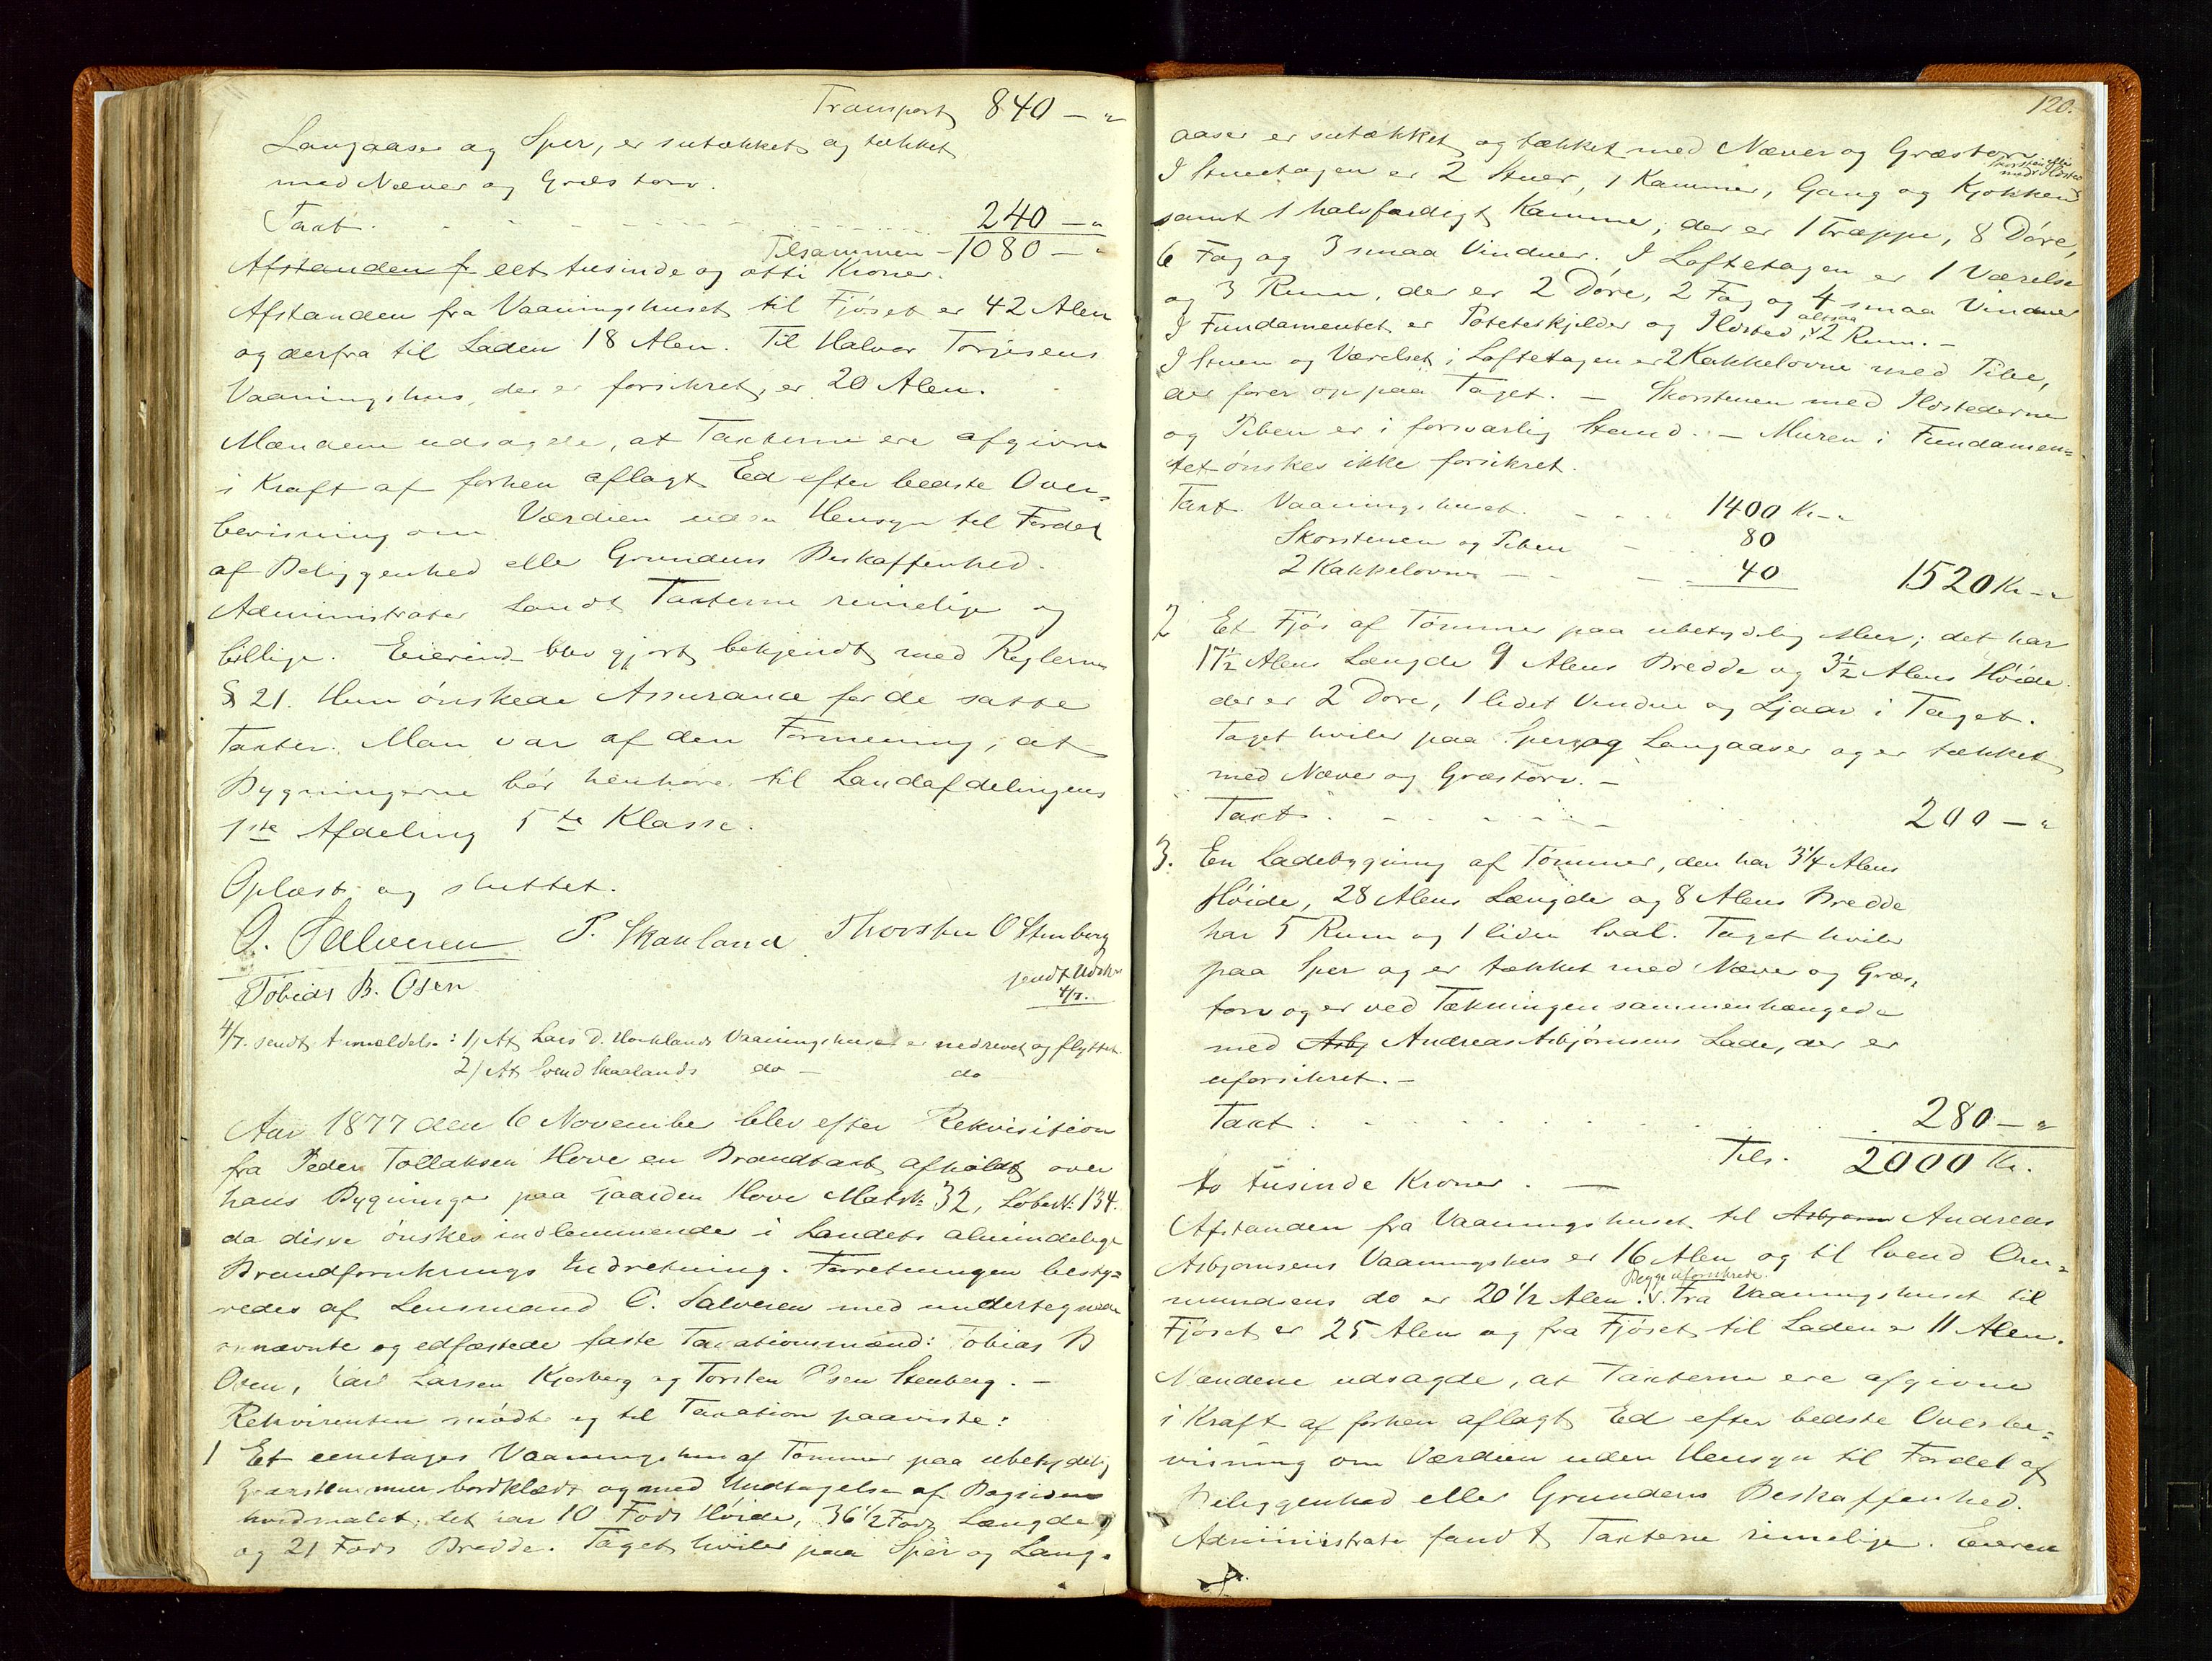 Transport 840 — "
Langaaser og Sper, er sutækket og tækket
med Næver og Græstorv.
Taxt. 240 — "
Tilsammen - 1080 — "
Afstanden f eet tusinde og otti Kroner.
Afstanden fra Vaaningshuset til Fjøset er 42 Alen
og derfra til Laden 18 Alen. Til Halvor Torjesens
Vaaningshus, der er forsikret, er 20 Alen.
Mændene udsagde, at Taxterne ere afgivne
i Kraft af forhen aflagt Ed efter bedste Over-
bevisning om Værdien uden Hensyn til Fordel
af Beliggenhed eller Grundens Beskaffenhed.
Administrator fandt Taxterne rimelige og
billige. Eierinden blev gjort bekjendt med Reglerne
§ 21. Hun ønskede Assurance for de satte
Taxter. Man var af den Formening, at
Bygningerne bør henhøre til Landafdelingens
1ste Afdeling 5te Klasse.
Oplæst og sluttet.
O. Salvesen P. Skauland Thorsten O Stenberg
Tobias B. Osen
sendt Udskr
4/7.
4/7. sendt Anmeldelse: 1, At Lars D. Hauklands Vaaningshuset er nedrevet og flyttet.
2/ At Svend Skaalands do — do
Aar 1877 den 6 November blev efter Rekvisition
fra Peder Tollaksen Hove en Brandtaxt afholdt over
hans Bygninger paa Gaarden Hove Matr N: 32, Løbe N: 134.
da disse ønskes indlemmende i Landets almindelige
Brandforsikrings Indretning. Forretningen besty-
redes af Lensmand O. Salvesen med undertegnede
opnævnte og edfæstede faste Taxationsmænd: Tobias B
Osen, Carl Larsen Kjerberg og Torsten Olsen Stenberg. —
Rekvirenten mødte og til Taxation paaviste:
1 Et eenetages Vaaningshus af Tømmer paa ubetydelig
Graastensmur bordklædt og med Undtagelse af Bagsiden
hvidmalet; det har 10 Fods Høide, 36 1/2 Fods Længde
og 21 Fods Bredde. Taget hviler paa Sper og Lang-
120.
aaser er sutækket og tækket med Næver og Græstorv.
skorsten efter
med Ildsted
I Stuetagen er 2 Stuer, 1 Kammer, Gang og Kjøkken
samt 1 halvfærdigt Kammer; der er 1 Trappe, 8 Døre,
6 Fag og 3 smaa Vinduer. I Loftetagen er 1 Værelse
og 3 Rum, der er 2 Døre, 2 Fag og 4 smaa Vinduer
I Fundamentet er Poteteskjelder og Ildsted, altsaa 2 Rum. —
I Stuen og Værelset i Loftetagen er 2 Kakkelovne med Pibe,
der fører op paa Taget. — Skorstenen med Ildstederne
og Piben er i forsvarlig Stand. — Muren i Fundamen-
tet ønskes ikke forsikret.
Taxt. Vaaningshuset. 1400 Kr — "
Skorstenen og Piben 80
2 Kakkelovne — 40 1520 Kr — "
2 Et Fjøs af Tømmer paa ubetydelig Mur; det har
17 1/2 Alens Længde 9 Alens Bredde og 3 1/2 Alens Høide.
der er 2 Døre, 1 lidet Vindue og Ljaar i Taget.
Taget hviler paa Sper, og Langaaser og er tækket
med Næver og Græstorv. —
Taxt. 200 — "
3. En Ladebygning af Tømmer, den har 3 1/4 Alens
Høide, 28 Alens Længde og 8 Alens Bredde
har 5 Rum og 1 liden Sval. Taget hviler
paa Sper og er tækket med Næver og Græs-
torv og er ved Tækningen sammenhængede
med Asbj Andreas Asbjørnsens Lade, der er
uforsikret. —
Taxt. 280 — "
Tils. 2000 Kr.
to tusinde Kroner. —
Afstanden fra Vaaningshuset til Asbjørn Andreas
Asbjørnsens Vaaningshus er 16 Alen og til Svend Om-
mundsens do er 20 1/2 Alen. Begge uforsikrede. Fra Vaaningshuset til
Fjøset er 25 Alen og fra Fjøset til Laden er 11 Alen.
Mændene udsagde, at Taxterne ere afgivne
i Kraft af forhen aflagt Ed efter bedste Overbe-
visning om Værdien uden Hensyn til Fordel af
Beliggenhed eller Grundens Beskaffenhed.
Administrator fandt Taxterne rimelige. Eieren